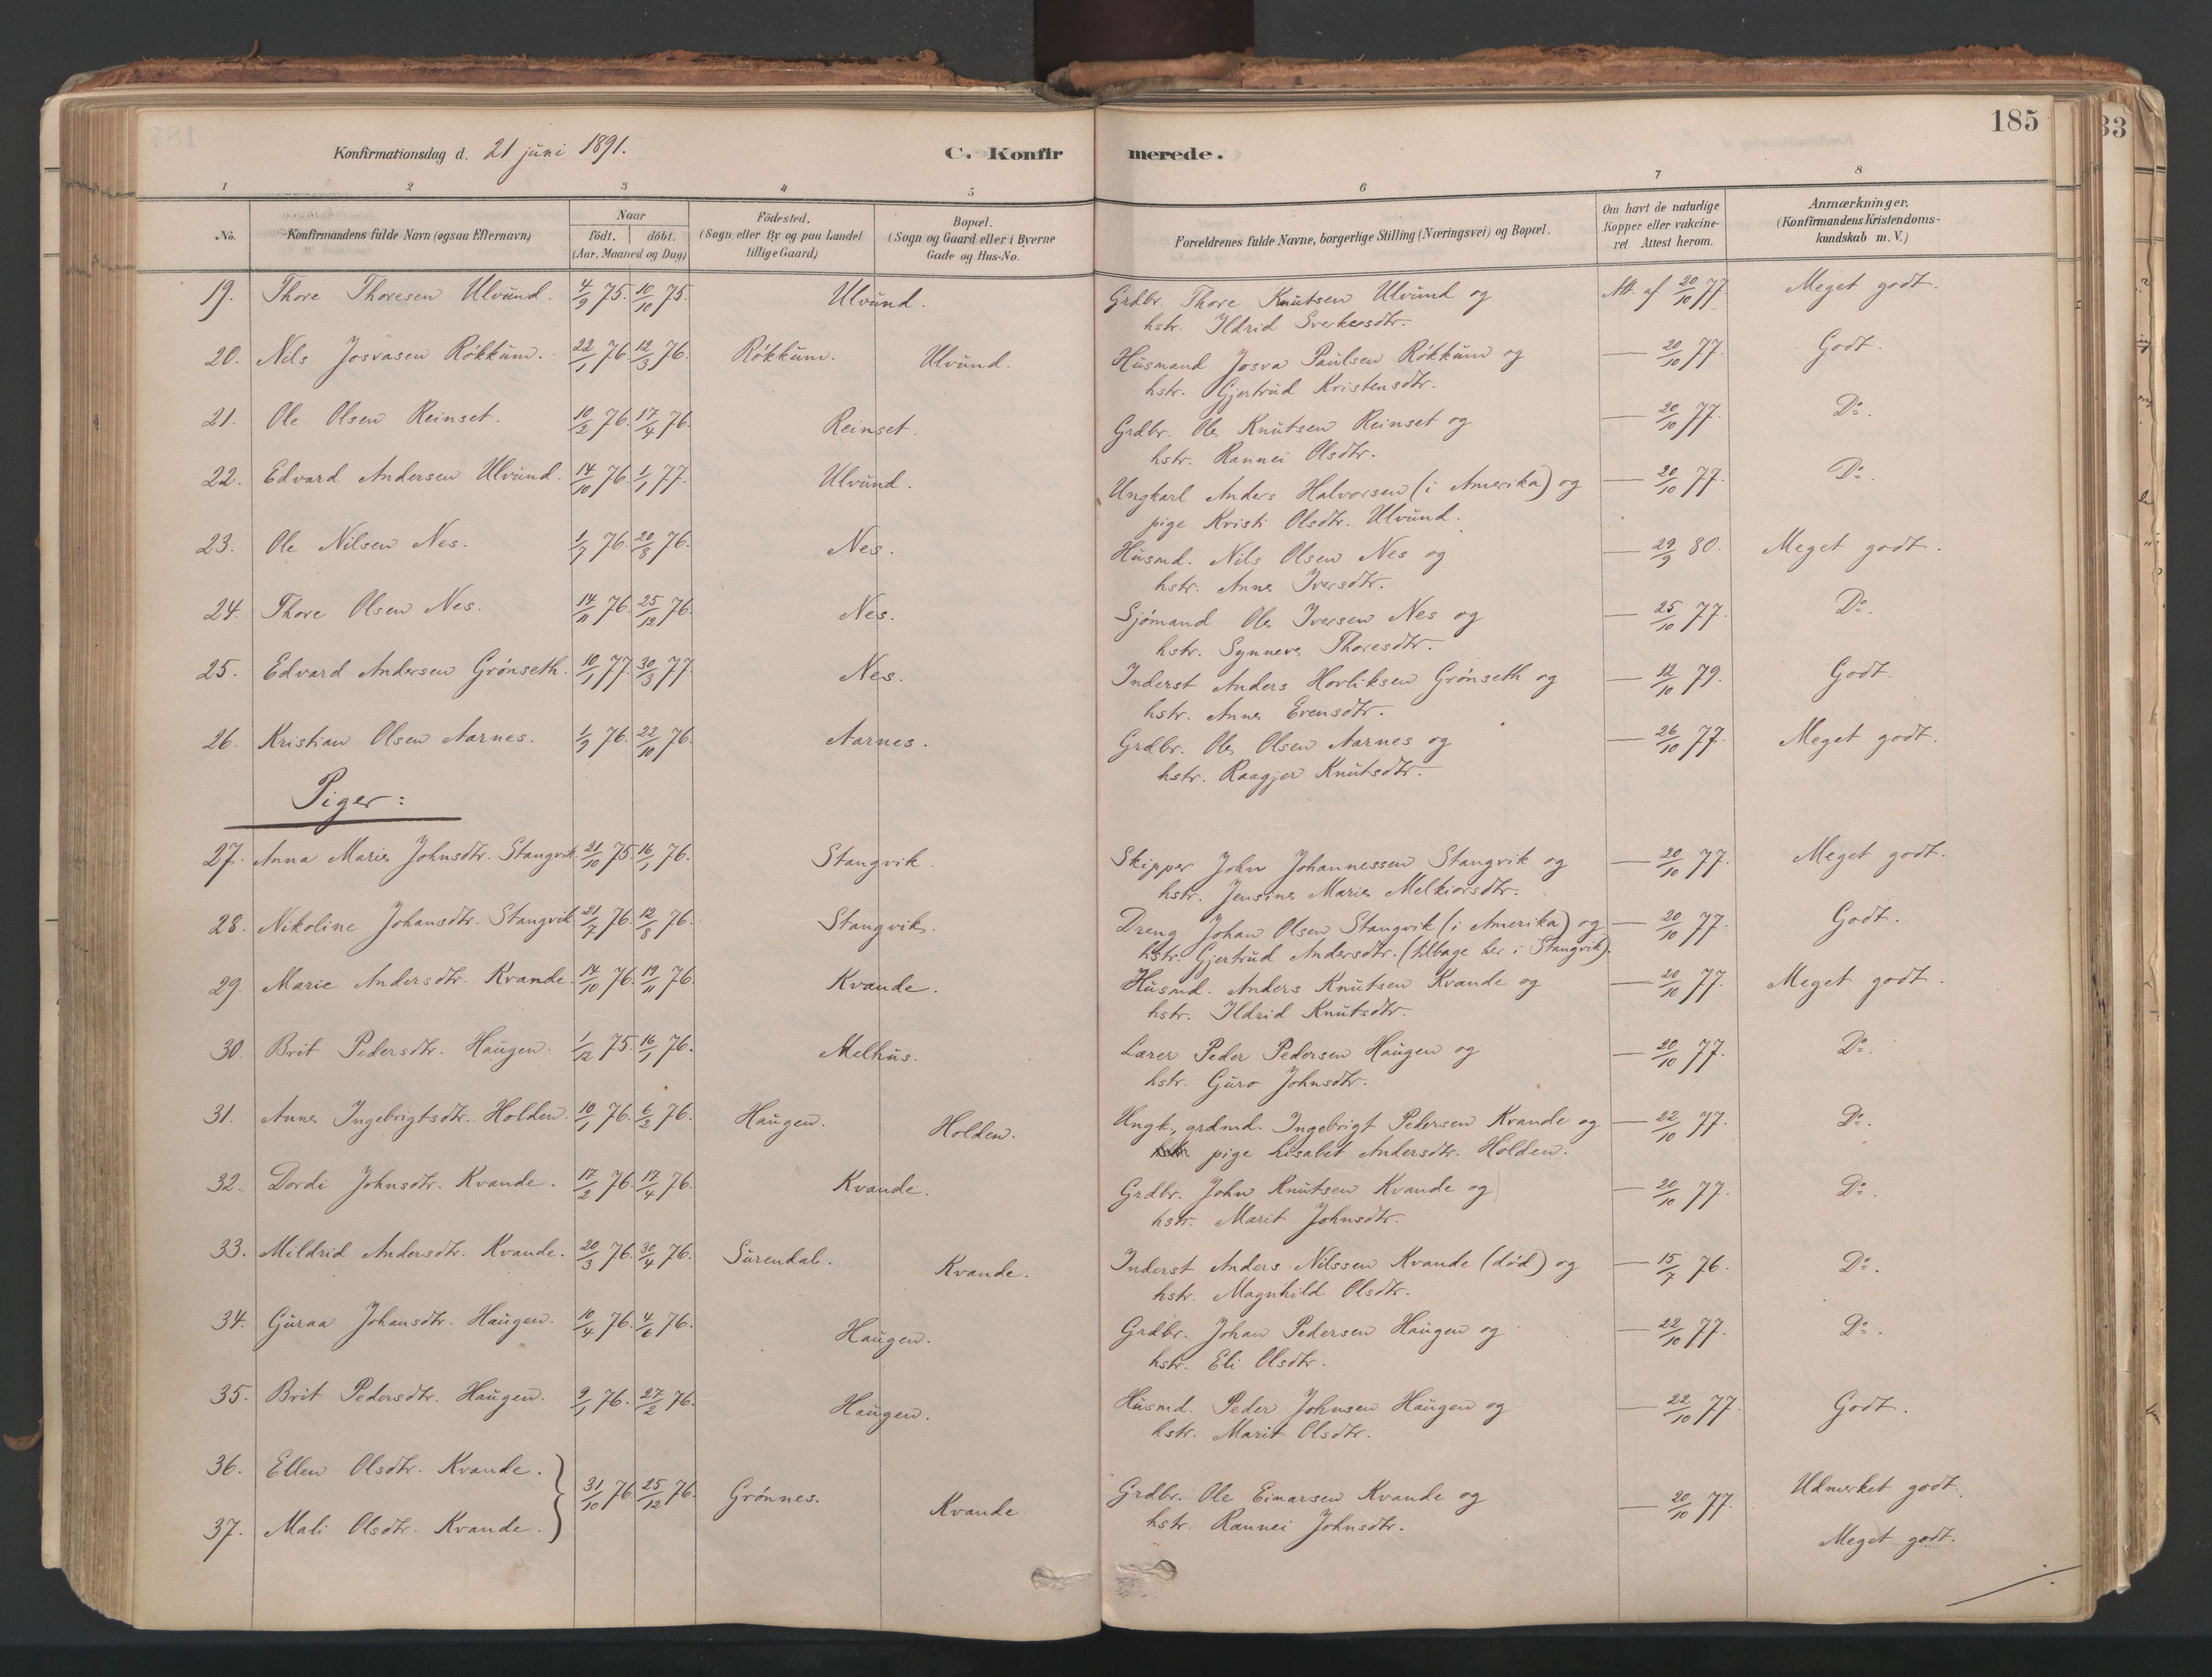 185
Konfirmationsdag d. 21 juni 1891. C. Konfirmerede.
1 2 3 4 5 6 7 8
No. Konfirmandens fulde Navn (ogsaa Efternavn) Naar født. døbt. (Aar, Maaned og Dag) Födested. (Sogn eller By og paa Landet tillige Gaard) Bopæl. (Sogn og Gaard eller i Byerne Gade og Hus-No. Forældrenes fulde Navne, borgerlige Stilling (Næringsvei) og Bopæl. Om havt de naturlige Kopper eller vakcineret Attest herom. Anmærkninger, (Konfirmandens Kristendomskundskab m. V.)
19. Thore Thoresen Ulvund. 4/9 75. 10/10 75. Ulvund. Grdbr. Thore Knutsen Ulvund og Att. af 20/10 77. Meget godt.
hstr. Ildrid Sverkersdtr.
20. Nils Josvasen Røkkum. 22/1 76. 12/3 76. Røkkum. Ulvund. Husmand Josva Paulsen Røkkum og — 20/10 77. Godt.
hstr. Gjertrud Kristensdtr.
21. Ole Olsen Reinset. 10/2 76. 17/4 76. Reinset. Grdbr. Ole Knutsen Reinset og — 20/10 77. Do.
hstr. Rannei Olsdtr.
22. Edvard Andersen Ulvund. 14/10 76. 1/1 77. Ulvund. Ungkarl Anders Halvorsen (i Amerika) og — 20/10 77. Do
pige Kristi Olsdtr. Ulvund.
23. Ole Nilsen Nes. 1/7 76. 20/8 76. Nes. Husmd. Nils Olsen Nes og — 29/9 80. Meget godt.
hstr. Anne Iversdtr.
24. Thore Olsen Nes. 14/11 76. 25/12 76. Nes. Sjømand Ole Iversen Nes og — 25/10 77. Do.
hstr. Synneve Thoresdtr.
25. Edvard Andersen Grønseth. 10/1 77. 30/3 77. Nes. Inderst Anders Horliksen Grønseth og — 12/10 79. Godt.
hstr. Anne Evensdtr.
26. Kristian Olsen Aarnes. 1/9 76. 22/10 76. Aarnes. Grdbr. Ole Olsen Aarnes og — 26/10 77. Meget godt.
hstr. Raagjer Knutsdtr.
Piger:
27. Anna Marie Johnsdtr. Stangvik. 21/10 75. 16/1 76. Stangvik. Skipper John Johannessen Stangvik og — 20/10 77. Meget godt.
hstr. Jensine Marie Melkiorsdtr.
28. Nikoline Johansdtr. Stangvik. 21/7 76. 12/8 76. Stangvik. Dreng Johan Olsen Stangvik (i Amerika) og — 20/10 77. Godt.
hstr. Gjertrud Andersdtr. (tilbage her i Stangvik).
29. Marie Andersdtr. Kvande. 14/10 76. 19/11 76. Kvande. Husmd. Anders Knutsen Kvande og — 20/10 77. Meget godt.
hstr. Ildrid Knutsdtr.
30. Brit Pedersdtr. Haugen. 1/12 75. 16/1 76. Melhus. Lærer Peder Pedersen Haugen og — 20/10 77. Do.
hstr. Guro Johnsdtr.
31. Anne Ingebrigtsdtr. Holden. 10/1 76. 6/2 76. Haugen. Holden. Ungk., grdmd. Ingebrigt Pedersen Kvande og — 22/10 77. Do.
pige Lisabet Andersdtr. Holden.
32. Dordi Johnsdtr. Kvande. 17/2 76. 17/4 76. Kvande. Grdbr. John Knutsen Kvande og — 20/10 77. Do.
hstr. Marit Johnsdtr.
33. Mildrid Andersdtr. Kvande. 20/3 76. 30/4 76. Surendal. Kvande. Inderst Anders Nilssen Kvande (død) og — 15/7 76. Do.
hstr. Magnhild Olsdtr.
34. Guraa Johansdtr. Haugen. 10/4 76. 4/6 76. Haugen. Grdbr. Johan Pedersen Haugen og — 22/10 77. Do.
hstr. Eli Olsdtr.
35. Brit Pedersdtr. Haugen. 9/1 76. 27/2 76. Haugen. Husmd. Peder Johnsen Haugen og — 22/10 77. Godt.
hstr. Marit Olsdtr.
36. Ellen Olsdtr. Kvande. 31/10 76. 25/12 76. Grønnes. Kvande. Grdbr. Ole Einarsen Kvande og — 20/10 77. Udmerket godt.
37. Mali Olsdtr. Kvande. hstr. Rannei Johnsdtr. Meget godt.